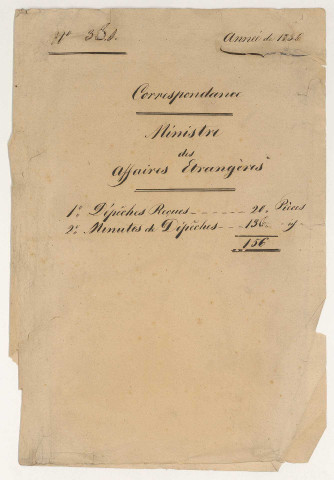 Année de 1856
Correspondance
Ministre
des
Affaires Etrangères
1º Dépêches Reçues - - - - - 20. Pièces
2º Minutes de Dépêches - - - 136 - "
156